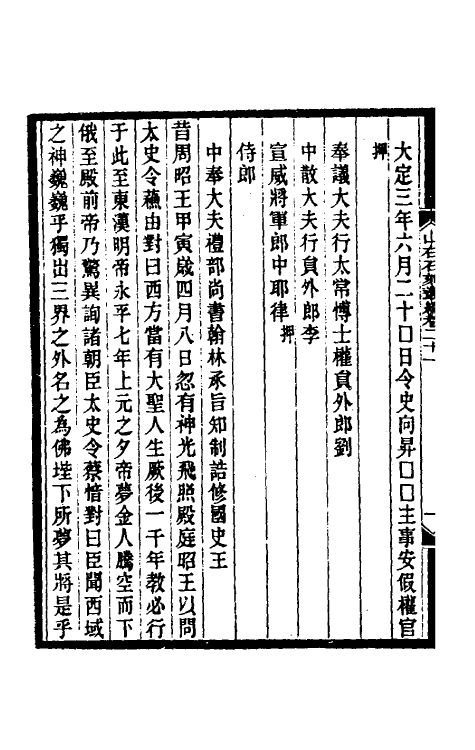 山右石刻叢編卷二十一
一
大定三年六月二十□日令史向昇□□主事安假權官
押
奉議大夫行太常博士權貟外郎劉
中散大夫行貟外郎李
宣威將軍郎中耶律押
侍郎
中奉大夫禮部尚書翰林承旨知制誥修國史王
昔周昭王甲寅歲四月八日忽有神光飛照殿庭昭王以問
太史令蘓由對曰西方當有大聖人生厥後一千年教必行
于此至東漢明帝永平七年上元之夕帝夢金人騰空而下
俄至殿前帝乃驚異詢諸朝臣太史令蔡愔對曰臣聞西域
之神巍巍乎獨出三界之外名之為佛陛下所夢其將是乎